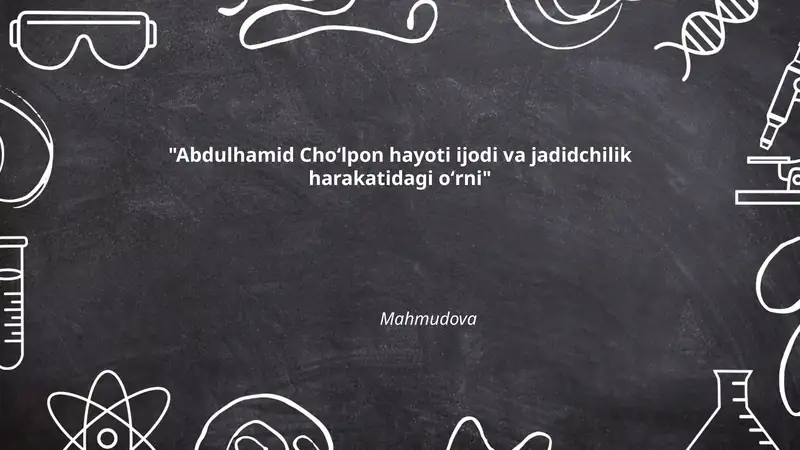 "Abdulhamid Choʻlpon hayoti ijodi va jadidchilik
harakatidagi oʻrni"
Mahmudova